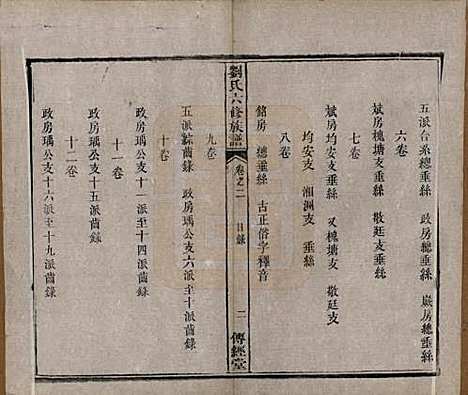 五派合系總垂絲　政房總垂絲　嚴房總垂絲
六卷
斌房槐塘支垂絲　散廷支垂絲
七卷
斌房均安支垂絲　又槐塘支　散廷支
均安支　湘洲支　垂絲
八卷
銘房　總垂絲　古正俗字釋音
劉氏六修族譜
卷之二　目錄
二
傳經堂
九卷
五派綜齒錄　政房瑀公支六派至十派齒錄
十卷
政房瑀公支十一派至十四派齒錄
十一卷
政房瑀公支十五派齒錄
十二卷
政房瑀公支十六派至十九派齒錄